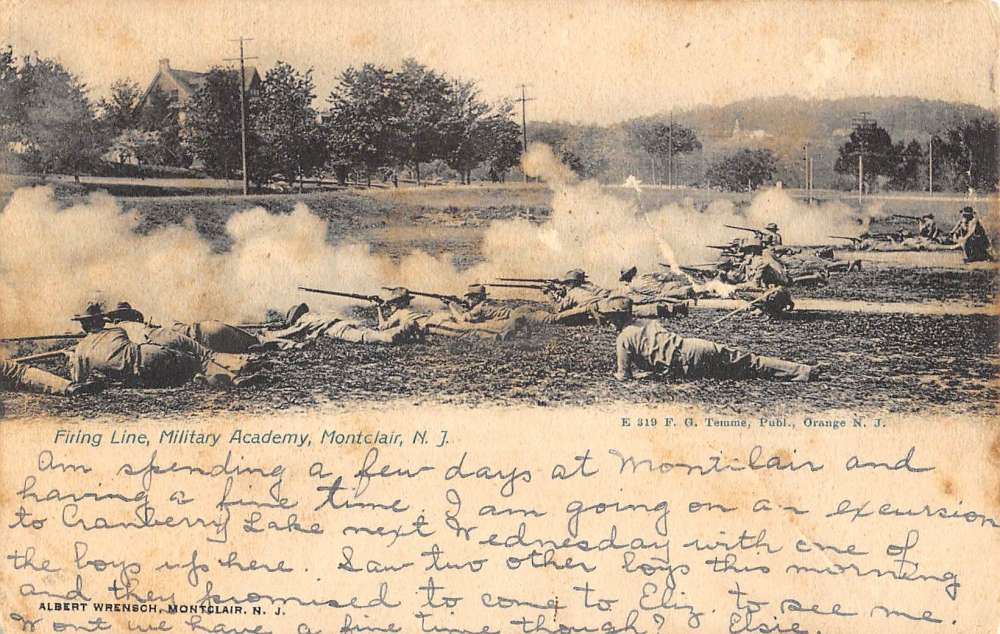 Firing Line, Military Academy, Montclair, N. J.
E 319 F. G. Temme, Publ., Orange N. J.
Am spending a few days at Montclair and
having a fine time. I am going on an excursion
to Cranberry Lake next Wednesday with one of
the boys up here. Saw two other boys this morning
and they promised to come to Eliz. to see me.
ALBERT WRENSCH, MONTCLAIR, N. J.
Wont we have a fine time though? Elsie.